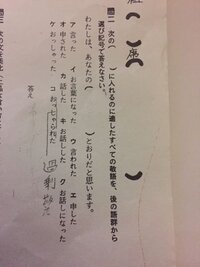 問二 次の( )に入れるのに適したすべての敬語を、後の語群から
選び記号で答えなさい。
わたしは、あなたの( )とおりだと思います。
ア 言った イ お言葉になった ウ 言われた エ 申した
オ 申された カ 話した キ お話しした ク お話しになった
ケ おっしゃった コ おっしゃられた
答え
過剰敬語